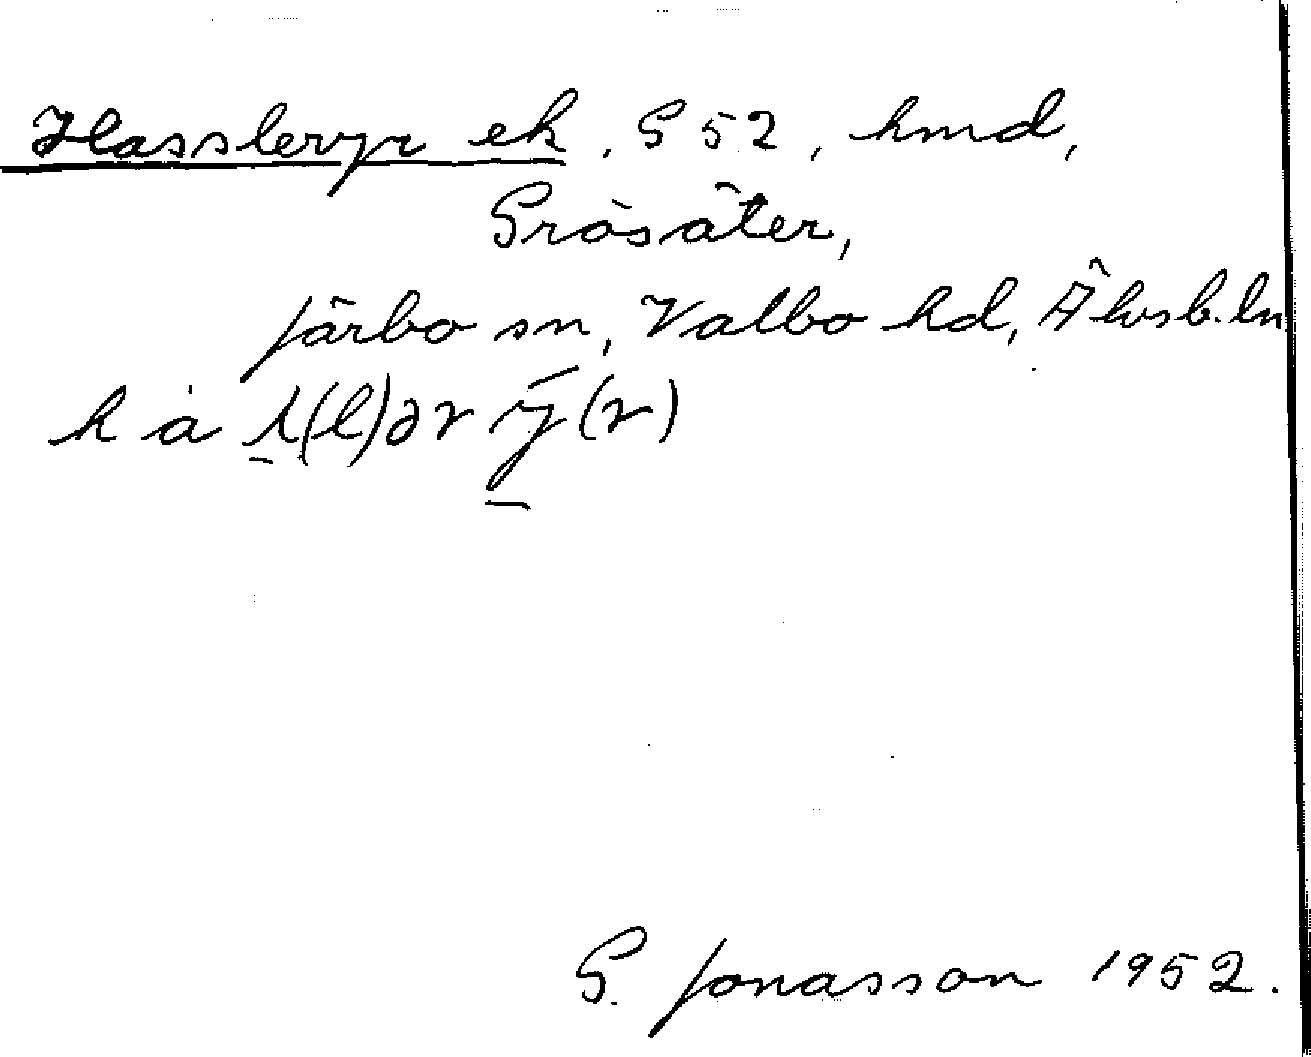 Hassleryr ek, G 52, hmd,
Gråsäter,
Järbo sn, Valbo hd, Älvsb. ln
h a l(l)ər ry(r)
G. Jonasson 1952.